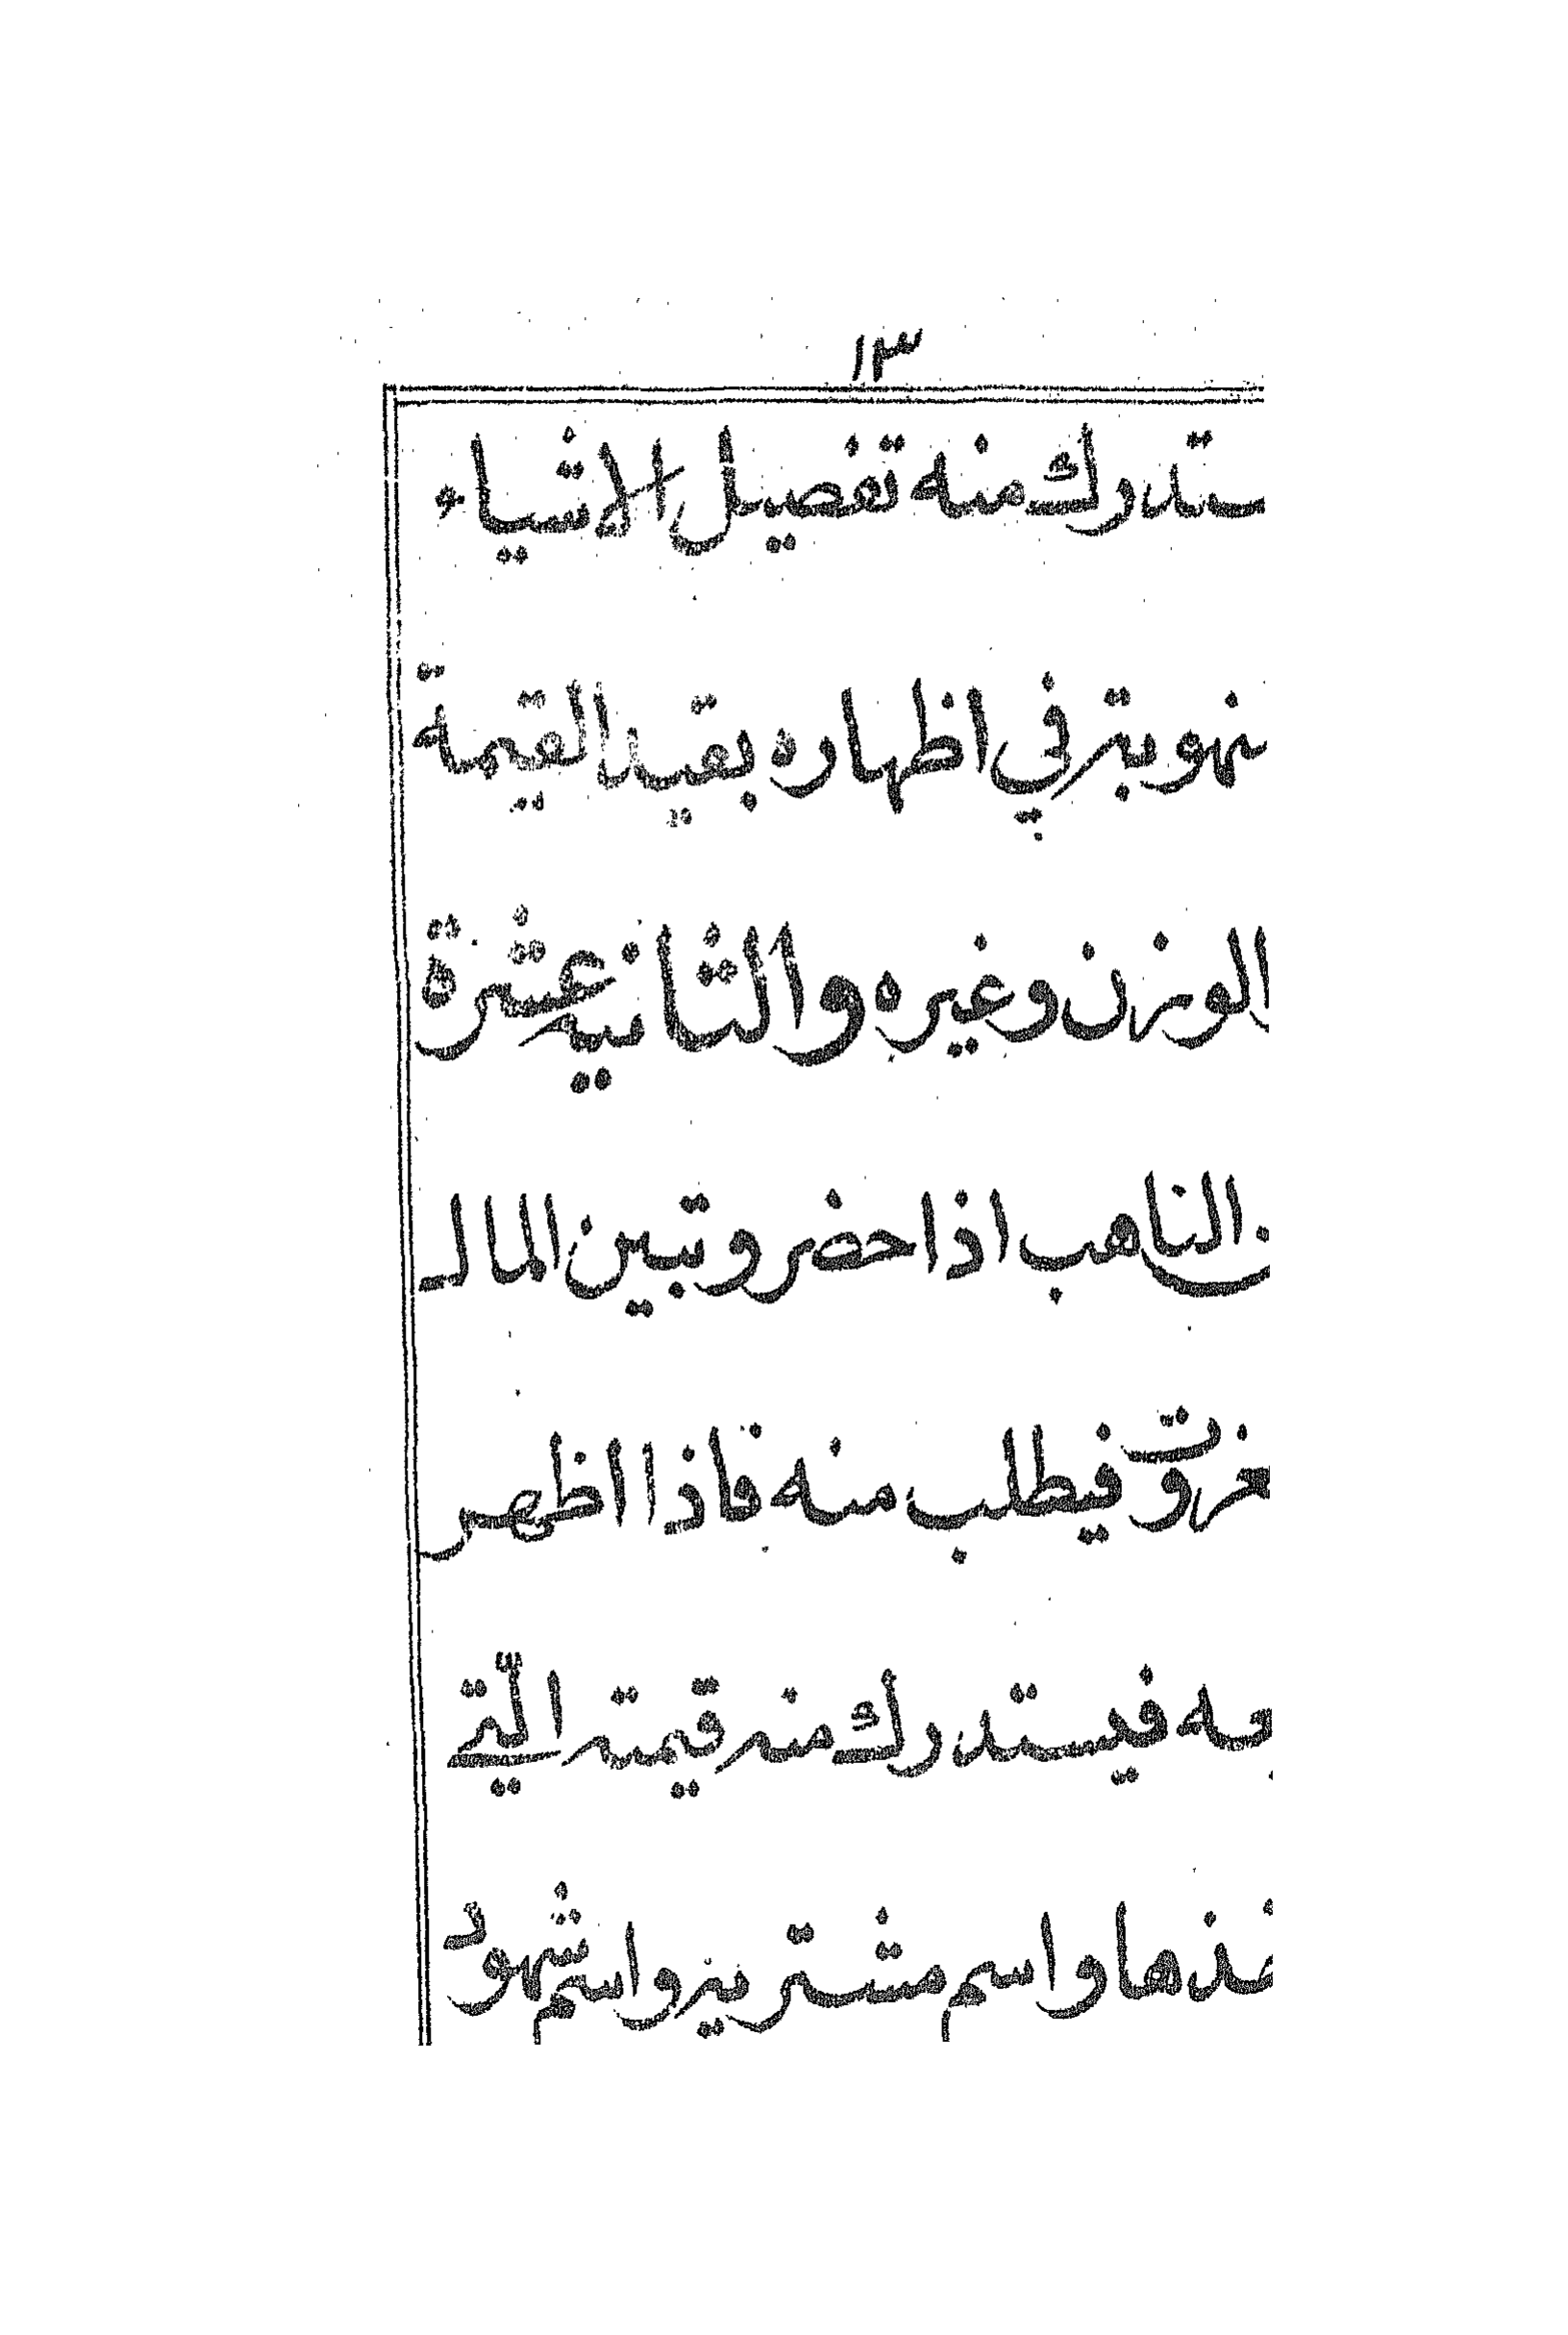 ١٣
ستدرك منه تفصيل الاشياء
نهوبته في اظهاره بقيد القيمة
الوزن وغيره والثانيه عشرة
الناهب اذا حضر وتبين المال
فيطلب منه فاذا اظهر
فيستدرك منه قيمته الّتي
واسم مشتريه واسم شهود